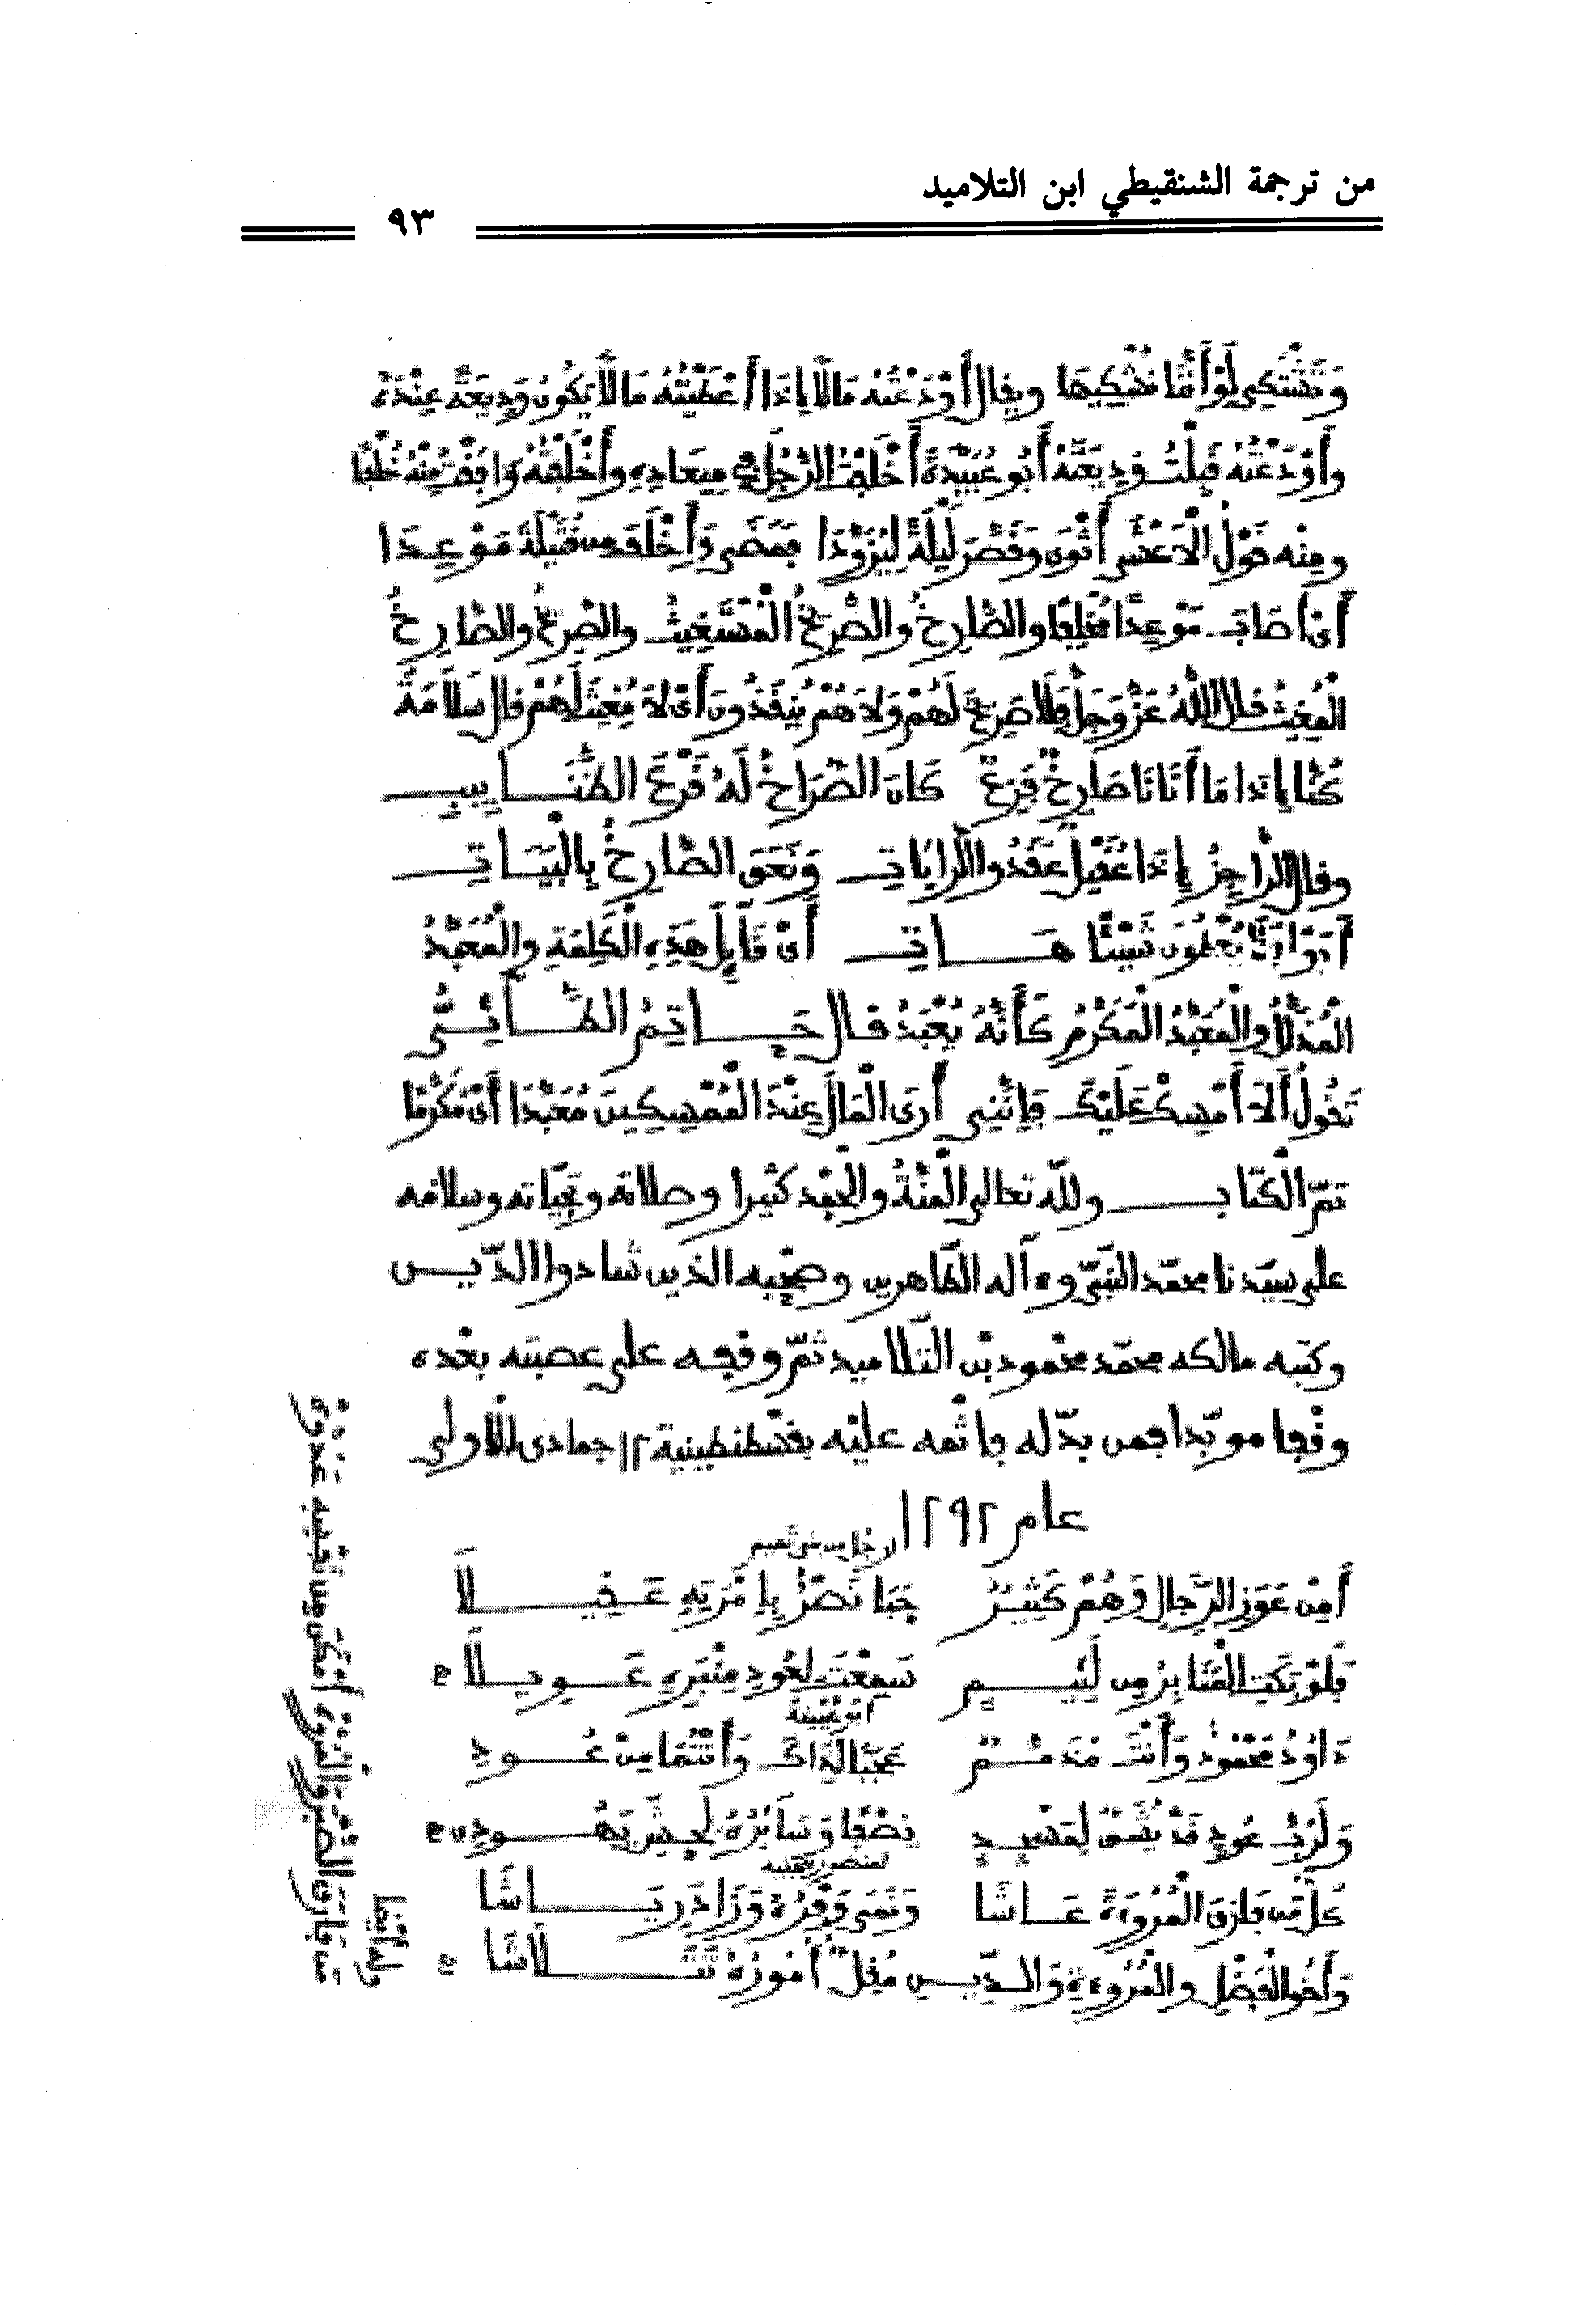 من ترجمة الشنقيطي ابن التلاميد
٩٣
وَتَشْتَكِي لَوْ أَنَّنَا نُشْكِيهَا ويقال أَوْدَعْتُهُ مَالًا إِذَا أَعْطَيْتُهُ مَالًا يَكُونُ وَدِيعَةً عِنْدَهُ
وأَوْدَعْتُهُ قَبِلْتُ وَدِيعَتَهُ أَبُو عُبَيْدَةَ أَخْلَفْتُ الرَّجُلَ فِي مِيعَادِهِ وأَخْلَفْتُهُ وَافَقْتُ مِنْهُ خُلْفًا
ومنه قَوْلُ الْأَعْشَى أَثْوَى وَقَصَّرَ لَيْلَةً لِيُزَوَّدَا فَمَضَى وَأَخْلَفَ مِن قُتَيْلَةَ مَوْعِدَا
أَىْ أَصَابَ مَوْعِدًا مُخْلِفًا والصَّارِخُ والصَّرِيخُ الْمُسْتَغِيثُ والصَّرِيخُ والصَّارِخُ
الْمُغِيثُ قال اللهُ عَزَّ وَجَلَّ فَلَا صَرِيخَ لَهُمْ وَلَا هُمْ يُنقَذُونَ أَىْ لَا مُغِيثَ لَهُمْ قال سَلَامَةُ
كُنَّا إِذَا مَا أَتَانَا صَارِخٌ فَزِعٌ كَانَ الصُّرَاخُ لَهُ قَرْعَ الظَّنَابِيبِ
وقال الرَّاجِزُ إِذَا عُقَيْلٌ عَقَدُوا الرَّايَاتِ وَنَقَعَ الصَّارِخُ بِالْبَيَاتِ
أَبَوْا فَمَا يُعْطُونَ شَيْئًا هَاتِ أَىْ قَائِلَ هَذِهِ الْكَلِمَةِ والْمُعَبَّدُ
الْمُذَلَّلُ والْمُعَبَّدُ الْمُكَرَّمُ كَأَنَّهُ يُعْبَدُ قال حَاتِمُ الطَّائِيُّ
تَقُولُ أَلَا أَمْسِكْ عَلَيْكَ فَإِنَّنِي أَرَى الْمَالَ عِنْدَ الْمُمْسِكِينَ مُعَبَّدَا أَىْ مُكَرَّمًا
تمّ الْكتاب ولله تعالى الْمنّةُ والْحمْد كثيرا وصلاته وتحيّاته وسلامه
على سيّدنا محمّد النّبيّ وءاله الطّاهرين وصحْبه الذين شادوا الدّين
وكتبه مالكه محمّد محْمود بْن التّلاميد ثمّ وقفه على عصبته بعْده
وقْفا موبّدا فمن بدّله فإثْمه عليْه بقسْطنْطينية ١٢ جمادى الْأولى
عام ١٢٩٢
لرجل من بني تميم
أَمِنْ عَوَزِ الرِّجَالِ وَهُمْ كَثِيرٌ حَبَا نَصْرٌ بِإِمْرَتِهِ عَقِيلَا
فَلَوْ بَكَتِ الْمَنَابِرُ مِن لَئِيمٍ سَمِعْتَ لِعُودِ مِنْبَرِهِ عَوِيلَا
أبو عيينة
دَاوُدُ مَحْمُودٌ وَأَنْتَ مُذَمَّمٌ عَجَبًا لِذَاكَ وَأَنْتُمَا مِنْ عُودِ
وَلَرُبَّ عُودٍ قَدْ يُشَقُّ لِمَسْجِدٍ نِصْفًا وَسَائِرُهُ لِحُشِّ يَهُودِ
لمنصور الفقيه
كُلُّ مَن فَارَقَ الْمُرُوءَةَ عَاشَا وَنَمَى وَفْرُهُ وَزَادَ رِيَاشَا
وَأَخُو الْفَضْلِ والْمُرُوءَةِ وَالدِّينِ مُقِلٌّ أُمُورُهُ تَتَلَاشَا
وله أيْضا